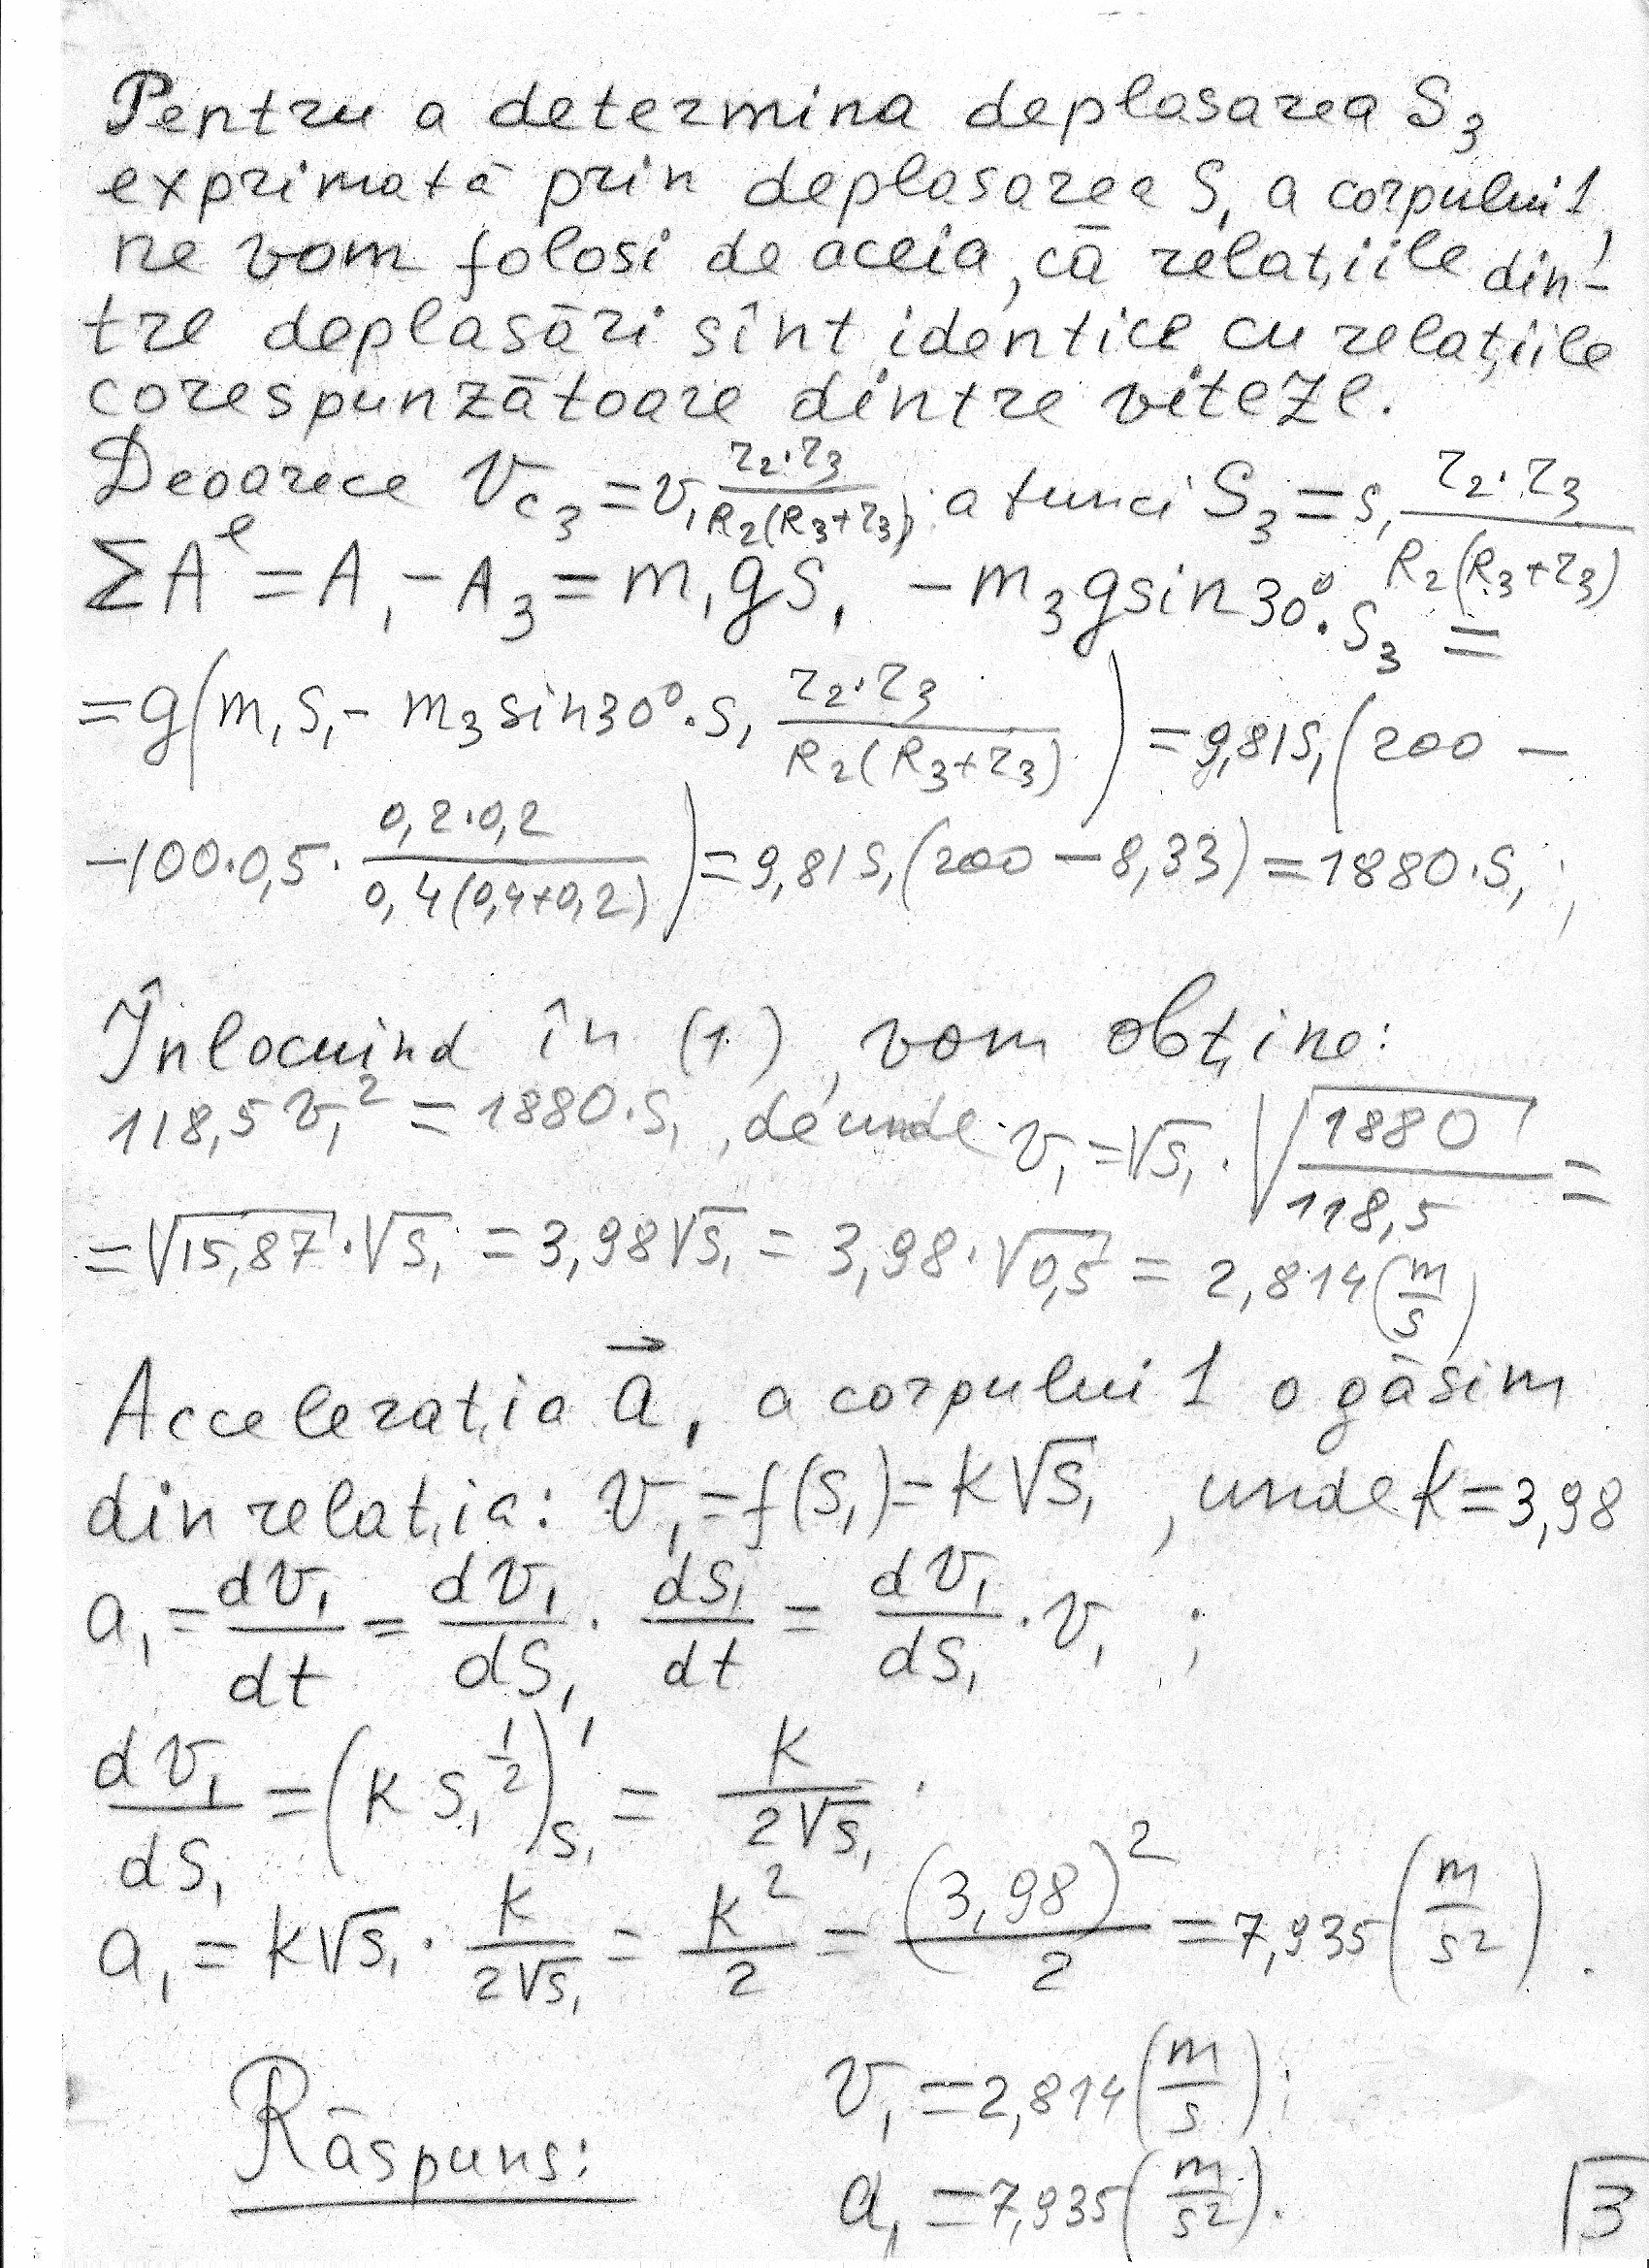 Pentru a determina deplasarea S₃
exprimată prin deplasarea S₁ a corpului 1,
ne vom folosi de aceia, că relațiile din-
tre deplasări sînt identice cu relațiile
corespunzătoare dintre viteze.
Deoarece V_C₃ = v₁ (r₂·r₃)/(R₂(R₃+r₃)); atunci S₃ = s₁ (r₂·r₃)/(R₂(R₃+r₃))
ΣAᵉ = A₁ − A₃ = m₁gS₁ − m₃g sin30°·S₃ =
= g(m₁S₁ − m₃ sin30°·S₁ (r₂·r₃)/(R₂(R₃+r₃))) = 9,81S₁(200 −
−100·0,5·(0,2·0,2)/(0,4(0,4+0,2))) = 9,81S₁(200 − 8,33) = 1880·S₁;
Înlocuind în (1), vom obține:
118,5v₁² = 1880·S₁, de unde v₁ = √S₁·√(1880/118,5) =
= √15,87·√S₁ = 3,98√S₁ = 3,98·√0,5 = 2,814(m/s)
Accelerația a⃗₁ a corpului 1 o găsim
din relația: v₁ = f(S₁) = k√S₁, unde k = 3,98
a₁ = dv₁/dt = dv₁/dS₁ · dS₁/dt = dv₁/dS₁ · v₁;
dv₁/dS₁ = (k S₁^½)'_S₁ = k/(2√S₁).
a₁ = k√S₁ · k/(2√S₁) = k²/2 = (3,98)²/2 = 7,935(m/s²).
Răspuns: v₁ = 2,814(m/s);
a₁ = 7,935(m/s²).
3